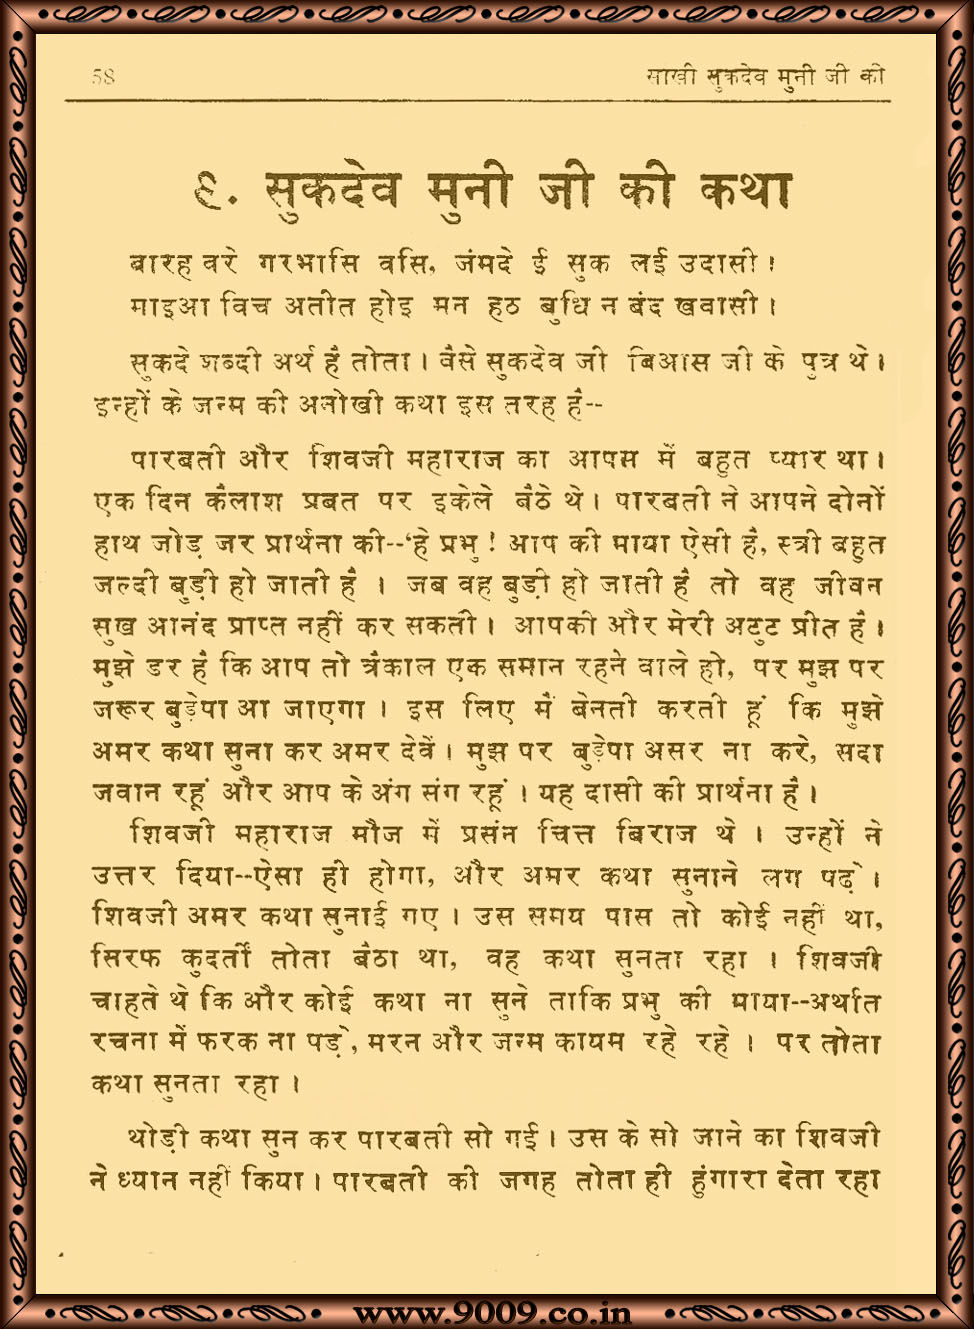 58
साखी सुकदेव मुनी जी की
९. सुकदेव मुनी जी की कथा
बारह वरे गरभासि वसि, जंमदे ई सुक लई उदासी !
माइआ विच अतीत होइ मन हठ बुधि न बंद खवासी ।
सुकदे शब्दी अर्थ है तोता । वैसे सुकदेव जी बिआस जी के पुत्र थे ।
इन्हों के जन्म की अनोखी कथा इस तरह है--
पारबती और शिवजी महाराज का आपस में बहुत प्यार था ।
एक दिन कैलाश प्रबत पर इकेले बैठे थे । पारबती ने आपने दोनों
हाथ जोड़ जर प्रार्थना की--'हे प्रभु ! आप की माया ऐसी है, स्त्री बहुत
जल्दी बुड़ी हो जाती है । जब वह बुड़ी हो जाती है तो वह जीवन
सुख आनंद प्राप्त नहीं कर सकती । आपकी और मेरी अटुट प्रीत है ।
मुझे डर है कि आप तो त्रैकाल एक समान रहने वाले हो, पर मुझ पर
जरूर बुड़ेपा आ जाएगा । इस लिए मैं बेनती करती हूं कि मुझे
अमर कथा सुना कर अमर देवें । मुझ पर बुड़ेपा असर ना करे, सदा
जवान रहूं और आप के अंग संग रहूं । यह दासी की प्रार्थना है ।
शिवजी महाराज मौज में प्रसंन चित्त बिराज थे । उन्हों ने
उत्तर दिया--ऐसा ही होगा, और अमर कथा सुनाने लग पढ़े ।
शिवजी अमर कथा सुनाई गए । उस समय पास तो कोई नहीं था,
सिरफ कुदर्तीं तोता बैठा था, वह कथा सुनता रहा । शिवजी
चाहते थे कि और कोई कथा ना सुने ताकि प्रभु की माया--अर्थात
रचना में फरक ना पड़े, मरन और जन्म कायम रहे रहे । पर तोता
कथा सुनता रहा ।
थोड़ी कथा सुन कर पारबती सो गई । उस के सो जाने का शिवजी
ने ध्यान नहीं किया । पारबती की जगह तोता ही हुंगारा देता रहा
www.9009.co.in